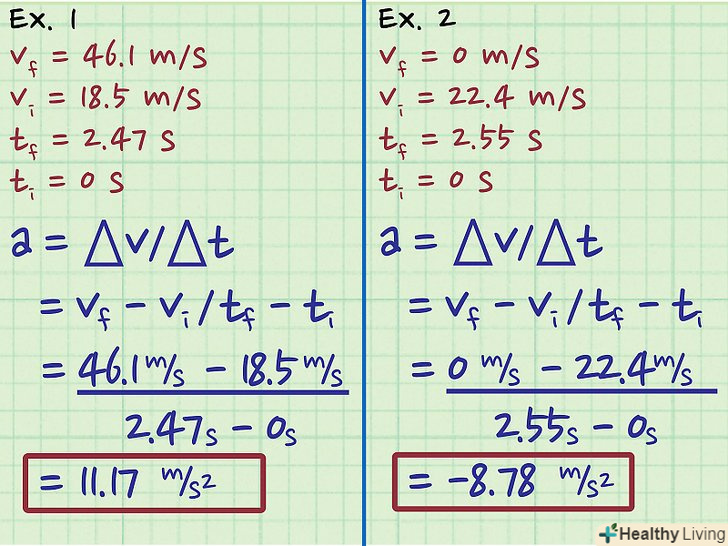 Ex. 1
vf = 46.1 m/s
vi = 18.5 m/s
tf = 2.47 s
ti = 0 s
a = △v/△t
= vf - vi/tf - ti
= 46.1 m/s - 18.5 m/s
2.47s - 0s
= 11.17 m/s2
Ex. 2
vf = 0 m/s
vi = 22.4 m/s
tf = 2.55 s
ti = 0 s
a = △v/△t
= vf - vi/tf - ti
= 0 m/s - 22.4 m/s
2.55s - 0s
= -8.78 m/s2
Healthy Living